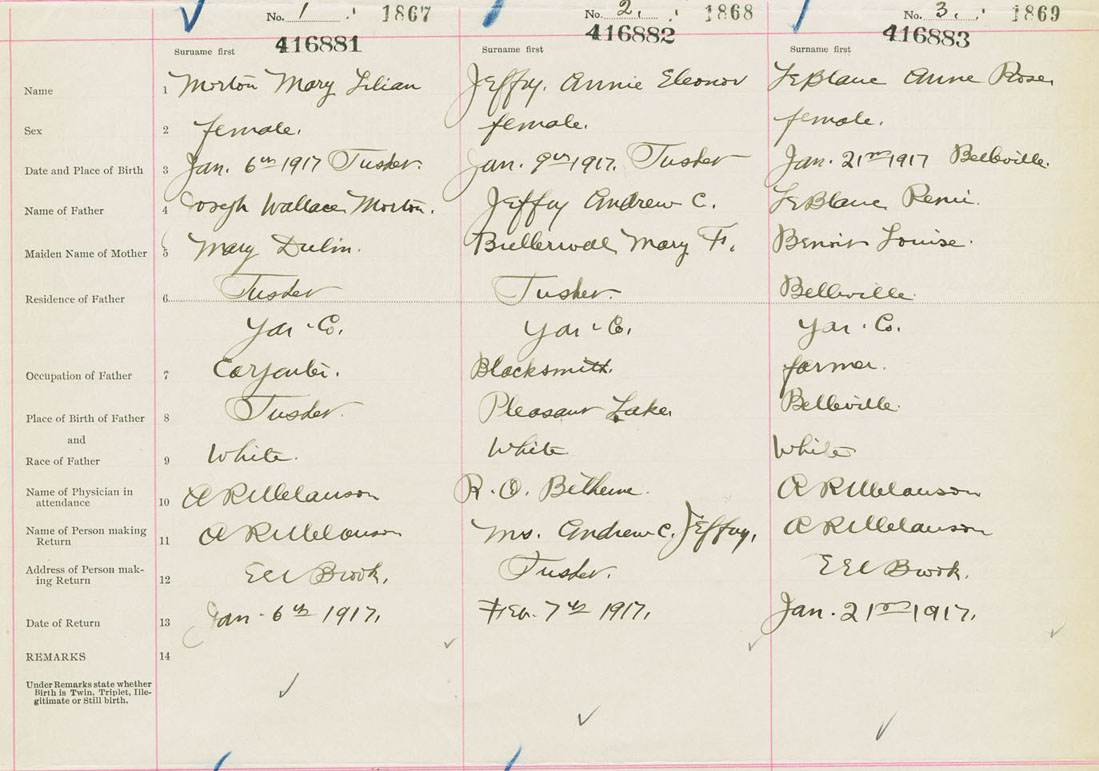 No. 1 1867 No. 2. 1868 No. 3. 1869
416881 416882 416883
Surname first Surname first Surname first
Name 1 Morton Mary Lilian Jeffry, Annie Eleonor LeBlanc Anne Rose,
Sex 2 female. female. female.
Date and Place of Birth 3 Jan. 6th 1917 Tusket. Jan. 9th 1917. Tusket Jan. 21st 1917 Belleville.
Name of Father 4 Joseph Wallace Morton. Jeffry Andrew C. LeBlanc Remi.
Maiden Name of Mother 5 Mary Dulin. Mary F. Benoit Louise.
Residence of Father 6 Tusket Tusket. Belleville.
Yar. Co. Yar. Co. Yar. Co.
Occupation of Father 7 Carpenter. Blacksmith. farmer.
Place of Birth of Father 8 Tusket. Pleasant Lake, Belleville.
and
Race of Father 9 White. White. White
Name of Physician in
attendance 10 A R Melanson R. O. Betheune. A R Melanson
Name of Person making
Return 11 A R Melanson Mrs. Andrew C. Jeffry, A R Melanson
Address of Person mak-
ing Return 12 Eel Brook. Tusket. Eel Brook.
Date of Return 13 Jan. 6th 1917. Feb. 7th 1917. Jan. 21st 1917.
REMARKS 14
Under Remarks state whether
Birth is Twin, Triplet, Ille-
gitimate or Still birth.